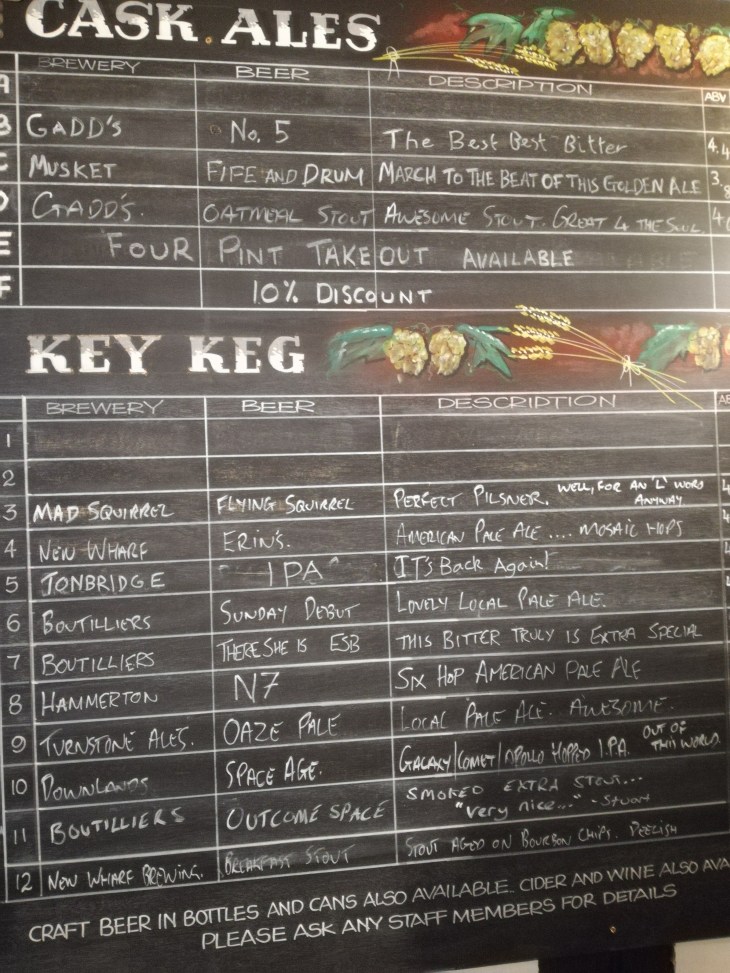 CASK ALES
BREWERY BEER DESCRIPTION ABV
A
B GADD'S No. 5 The Best Best Bitter 4.4
C MUSKET FIFE AND DRUM MARCH TO THE BEAT OF THIS GOLDEN ALE 3.8
D GADD'S. OATMEAL STOUT AWESOME STOUT. GREAT 4 THE SOUL.
E FOUR PINT TAKEOUT AVAILABLE
F 10% DISCOUNT
KEY KEG
BREWERY BEER DESCRIPTION
1
2
3 MAD SQUIRREL FLYING SQUIRREL PERFECT PILSNER. WELL, FOR AN 'L' WORD
ANYWAY
4 NEW WHARF ERIN'S. AMERICAN PALE ALE .... MOSAIC HOPS
5 TONBRIDGE IPA IT'S Back Again!
6 BOUTILLIERS SUNDAY DEBUT LOVELY LOCAL PALE ALE.
7 BOUTILLIERS THERE SHE IS ESB THIS BITTER TRULY IS EXTRA SPECIAL
8 HAMMERTON N7 SIX HOP AMERICAN PALE ALE
9 TURNSTONE ALES. OAZE PALE LOCAL PALE ALE. AWESOME.
10 DOWNLANDS SPACE AGE. GALAXY/COMET/APOLLO HOPPED I.P.A. OUT OF
THIS WORLD.
11 BOUTILLIERS OUTCOME SPACE SMOKED EXTRA STOUT...
"very nice..." - Stuart
12 NEW WHARF BREWING. BREAKFAST STOUT STOUT AGED ON BOURBON CHIPS.
CRAFT BEER IN BOTTLES AND CANS ALSO AVAILABLE. CIDER AND WINE ALSO AVA
PLEASE ASK ANY STAFF MEMBERS FOR DETAILS